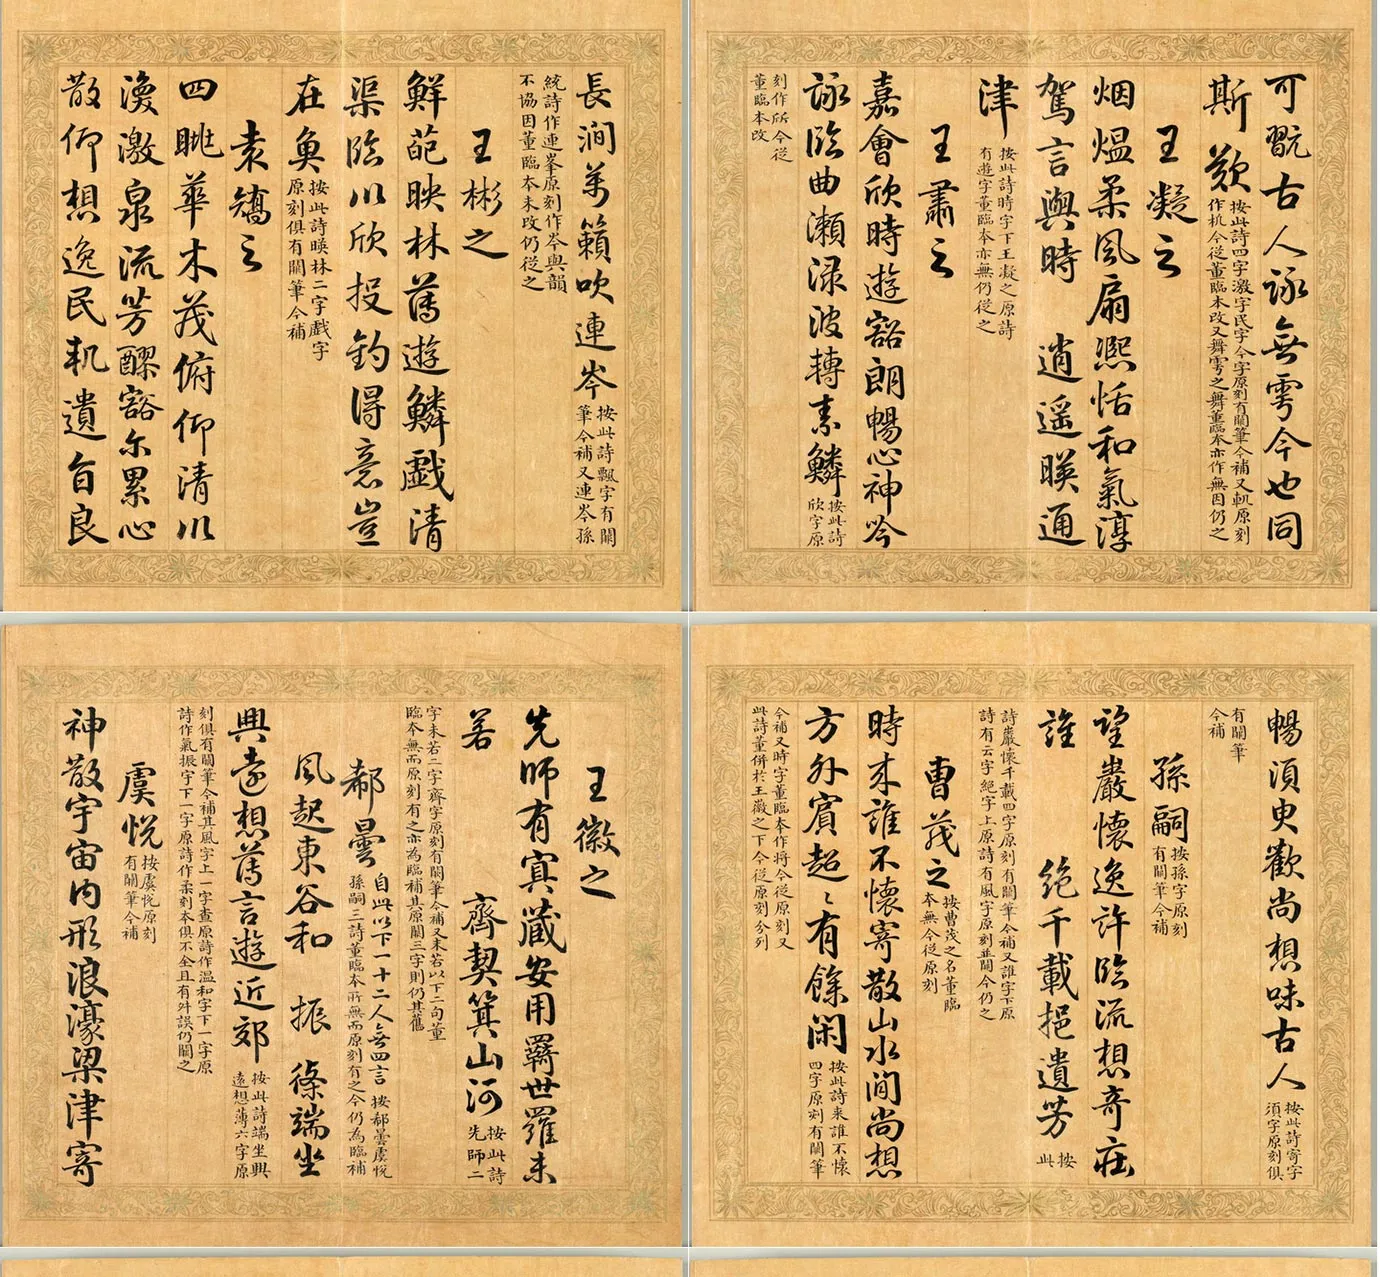 長澗萬籟吹連岑
按此詩飄字有闕
筆今補又連岑孫
統詩作連峯原刻作岑與韻
不協因董臨本未改仍從之
王彬之
鮮葩映林薄遊鱗戲清
渠臨川欣投釣得意豈
在魚
按此詩暎林二字戲字
原刻俱有闕筆今補
袁矯之
四眺華木茂俯仰清川
渙激泉流芳醪豁尔累心
散仰想逸民軌遺音良
可翫古人詠無雩今也同
斯歎
按此詩四字激字民字今字原刻有闕筆今補又軌原刻
作杋今從董臨本改又舞雩之舞董臨本亦作無因仍之
王凝之
烟熅柔風扇凞恬和氣淳
駕言興時 逍遥暎通
津
按此詩時字下王凝之原詩
有遊字董臨本亦無仍從之
王肅之
嘉會欣時遊豁朗暢心神吟
詠臨曲瀨渌波轉素鱗
按此詩
欣字原
刻作所今從
董臨本改
王徽之
先師有冥藏安用羇世羅未
若 齊契箕山河
按此詩
先師二
字未若二字齊字原刻有闕筆今補又未若以下二句董
臨本無而原刻有之亦為臨補其原闕三字則仍其舊
郗曇
自此以下一十二人無四言 按郗曇虞悅
孫嗣三詩董臨本所無而原刻有之今仍為臨補
風起東谷和 振 條端坐
興遠想薄言遊近郊
按此詩端坐興
遠想薄六字原
刻俱有闕筆今補其風字上一字查原詩作温和字下一字原
詩作氣振字下一字原詩作柔刻本俱不全且有舛誤仍闕之
虞悅
按虞悅原刻
有闕筆今補
神散宇宙内形浪濠梁津寄
暢須臾歡尚想味古人
按此詩寄字
須字原刻俱
有闕筆
今補
孫嗣
按孫字原刻
有闕筆今補
望巖懷逸許臨流想奇莊
誰 絶千載挹遺芳
按
此
詩巖懷千載四字原刻有闕筆今補又誰字下原
詩有云字絶字上原詩有風字原刻並闕今仍之
曹茂之
按曹茂之名董臨
本無今從原刻
時来誰不懷寄散山水間尚想
方外賓超〻有餘閑
按此詩来誰不懷
四字原刻有闕筆
今補又時字董臨本作将今從原刻又
此詩董併於王徽之下今從原刻分列